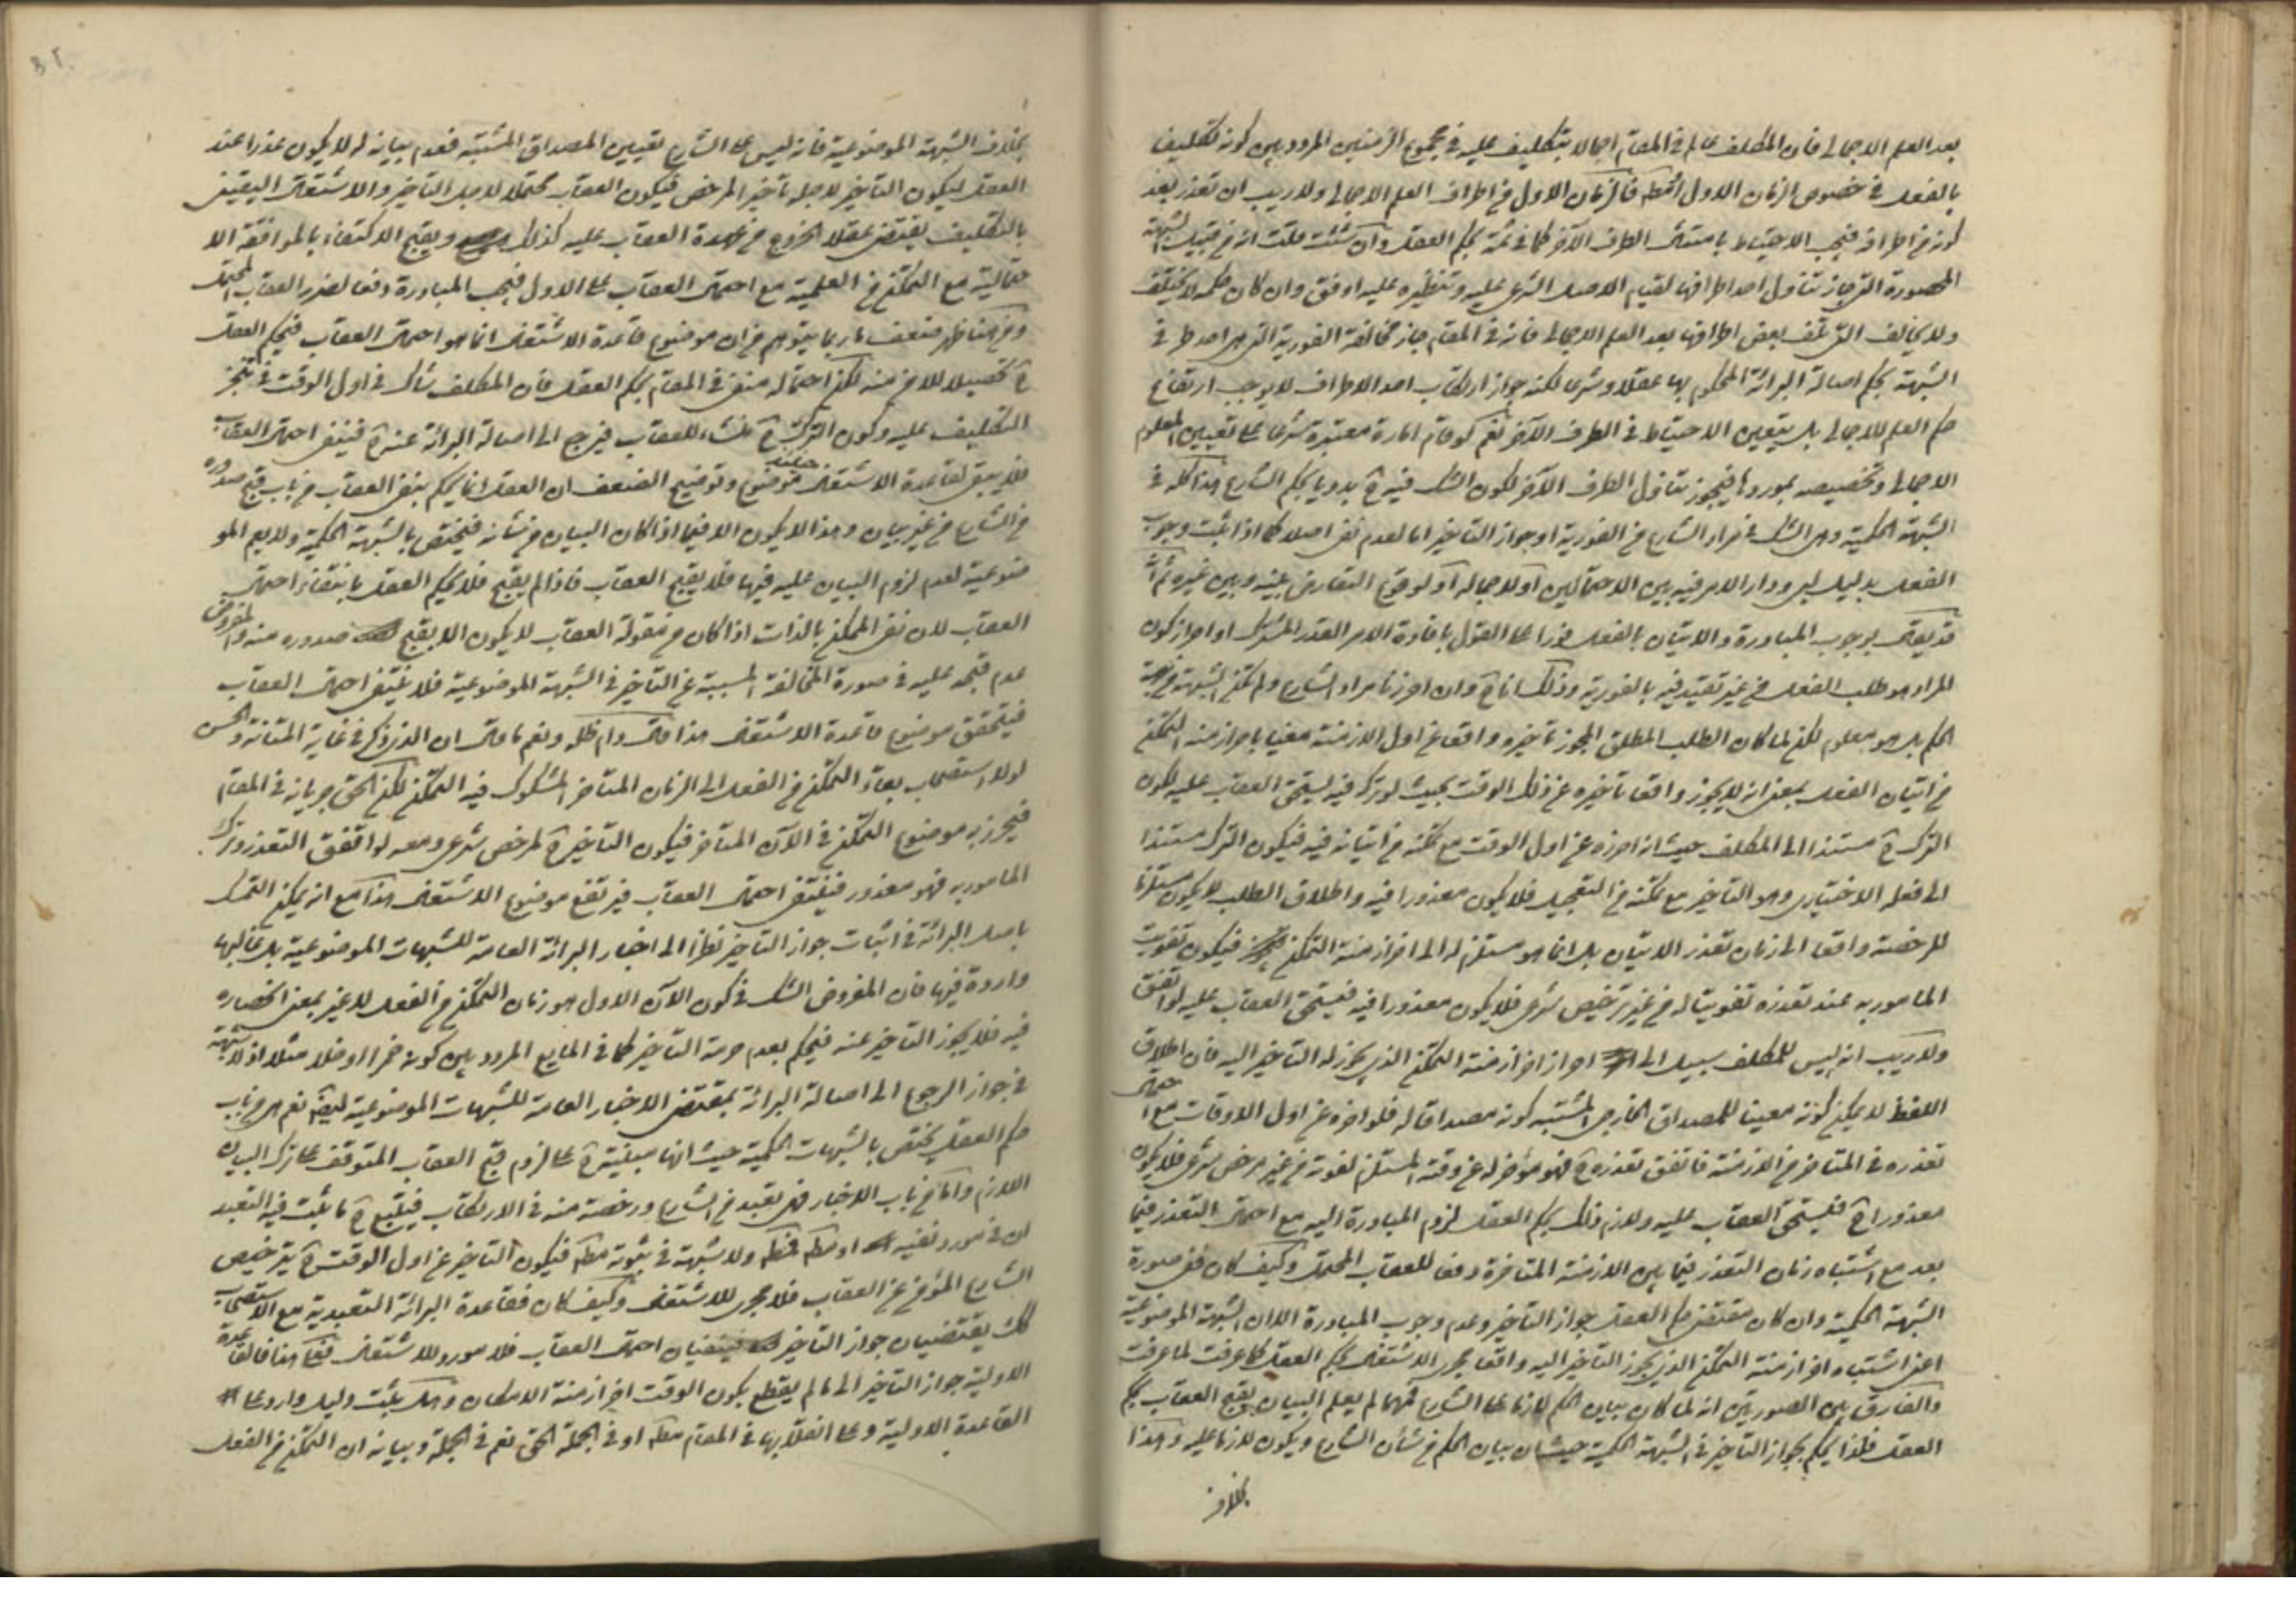 بعد العلم الاجمالى فان المكلف عالم فى المقام اجمالا بتكليف عليه فى مجموع الزمنين المردد بين كونه تكليف
بالفعل فى خصوص الزمان الاول فالزمان الاول من اطراف العلم الاجمالى ولا ريب ان تعذر بعد
كونه من اطرافه فيجب الاحتياط بامتثال الطرف الآخر كما فى ثمة بحكم العقل وان شئت قلت انه من قبيل الشبهة
المحصورة التى جاز تناول احد اطرافها لقيام الاصل الشرعى عليه وتنظيره عليه اوفق وان كان حكمه لا يختلف
ولا يخالف التى تلف بعض اطرافها بعد العلم الاجمالى فانه فى المقام جاز مخالفة الفورية التى هى احد طرفى
الشبهة بحكم اصالة البرائة المحكوم بها عقلا وشرعا لكنه جواز ارتكاب احد الاطراف لا يوجب ارتفاع
حكم العلم الاجمالى بل يتعين الاحتياط فى الطرف الآخر نعم لو قام امارة معتبرة شرعا على تعيين المعلوم
الاجمالى وتخصيصه بموردها فيجوز تناول الطرف الآخر لكون الشك فيه ح بدويا بحكم الشارع هذا كله فى
الشبهة الحكمية وهى الشك فى مراد الشارع من الفورية او جواز التاخير اما لعدم نص اصلا كما اذا ثبت وجوب
الفعل بدليل لبى ودار الامر فيه بين الاحتمالين او لاجماله او لوقوع التعارض بينه وبين غيره
قد يقال بوجوب المبادرة والاتيان بالفعل فورا على القول بافادة الامر القدر المشترك او احراز كون
المراد هو طلب الفعل من غير تقييد فيه بالفورية وذلك وان احرزنا مراد الشارع ولم تكن الشبهة من جهة
الحكم بل هو معلوم لكن لما كان الطلب المطلق المجوز تاخيره واقعا عن اول الازمنة مغيا باحراز منه التمكن
من اتيان الفعل بمعنى انه لا يجوز واقعا تاخيره عن ذلك الوقت بحيث لو ترك فيه يستحق العقاب عليه لكون
الترك ح مستندا الى المكلف حيث انه اخره عن اول الوقت مع تمكنه من اتيانه فيه فيكون الترك مستندا
الى فعله الاختيارى وهو التاخير مع تمكنه من التعجيل فلا يكون معذورا فيه واطلاق الطلب لا يكون مستلزما
للرخصة واقعا الى زمان تعذر الاتيان بل انما هو مستلزم له الى اخر ازمنة التمكن فيكون تفويت
المامور به عند تعذره تفويتا له من غير ترخيص شرعى فلا يكون معذورا فيه فيستحق العقاب عليه لو اتفق
ولا ريب انه ليس للمكلف سبيل الى احراز اخر ازمنة التمكن الذى يجوز له التاخير اليه فان اطلاق
اللفظ لا يمكن كونه معينا للمصداق الخارجى المشتبه كونه مصداقا له فلو اخره عن اول الاوقات مع احتمال
تعذره فى المتاخر من الازمنة فاتفق تعذره ح فهو مؤخر له عن وقته المستلزم لفوته من غير مرخص شرعى فلا يكون
معذورا ح فيستحق العقاب عليه ولازم ذلك بحكم العقل لزوم المبادرة اليه مع احتمال التعذر فيما
بعد مع اشتباه زمان التعذر فيما بين الازمنة المتاخرة دفعا للعقاب المحتمل وكيف كان ففى صورة
الشبهة الحكمية وان كان مقتضى حكم العقل جواز التاخير وعدم وجوب المبادرة الا ان الشبهة الموضوعية
اعنى اشتباه اخر ازمنة التمكن الذى يجوز التاخير اليه واقعا مجرى الاشتغال بحكم العقل كما عرفت لما عرفت
والفارق بين الصورتين انه لما كان بيان الحكم لازما على الشارع فمهما لم يعلم البيان يقبح العقاب بحكم
العقل فلذا يحكم بجواز التاخير فى الشبهة الحكمية حيث ان بيان الحكم من شأن الشارع ويكون لازما عليه وهذا
بخلاف
بخلاف الشبهة الموضوعية فانه ليس على الشارع تعيين المصداق المشتبه فعدم بيانه له لا يكون عذرا عند
العقل ليكون التاخير لاجله تاخير المرخص فيكون العقاب محتملا لاجل التاخير والاشتغال اليقينى
بالتكليف يقتضى عقلا الخروج من عهدة العقاب عليه كذلك ويقبح الاكتفاء بالموافقة الا
حتمالية مع التمكن من العلمية مع احتمال العقاب على الاول فيجب المبادرة دفعا لضرر العقاب المحتمل
ومن هنا ظهر ضعف ما ربما يتوهم من ان موضوع قاعدة الاشتغال انما هو احتمال العقاب فيحكم العقل
ح تحصيلا للامن منه لكن احتماله منفى فى المقام بحكم العقل فان المكلف شاك فى اول الوقت فى تنجز
التكليف عليه وكون الترك ح منشاء للعقاب فيرجع الى اصالة البرائة عنه ح فينفى احتمال العقاب
فلا يبقى لقاعدة الاشتغال حينئذ موضوع وتوضيح الضعف ان العقل انما يحكم بنفى العقاب من باب قبح صدوره
من الشارع من غير بيان وهذا لا يكون الا فيما اذا كان البيان من شأنه فيختص بالشبهة الحكمية ولا يعم المو
ضوعية لعدم لزوم البيان عليه فيها فلا يقبح العقاب فاذا لم يقبح فلا يحكم العقل بانتفاء احتمال
العقاب لان نفى الممكن بالذات اذا كان من مقولة العقاب لا يكون الا بقبح صدوره منه والمفروض
عدم قبحه عليه فى صورة المخالفة المسببة عن التاخير فى الشبهة الموضوعية فلا ينتفى احتمال العقاب
فيتحقق موضوع قاعدة الاشتغال هذا ما قال دام ظله ونعم ما قال ان الذى ذكره فى غاية المتانة والحسن
لولا استصحاب بقاء التمكن من الفعل الى الزمان المتاخر المشكوك فيه التمكن لكن الحق جريانه فى المقام
فيحرز به موضوع التمكن فى الآن المتاخر فيكون التاخير ح لمرخص شرعى ومعه لو اتفق التعذر وترك
المامور به فهو معذور فينتفى احتمال العقاب فيرتفع موضوع الاشتغال هذا مع انه يمكن التمسك
باصل البرائة فى اثبات جواز التاخير نظرا الى اخبار البرائة العامة للشبهات الموضوعية بل غالبها
واردة فيها فان المفروض الشك فى كون الآن الاول هو زمان التمكن من الفعل لا غير بمعنى انحصاره
فيه فلا يجوز التاخير عنه فيحكم بعدم حرمة التاخير كما فى المايع المردد بين كونه خمرا او خلا مثلا اذ لا شبهة
فى جواز الرجوع الى اصالة البرائة بمقتضى الاخبار العامة للشبهات الموضوعية نعم هى من باب
حكم العقل يختص بالشبهات الحكمية حيث انها مبنية ح على لزوم قبح العقاب المتوقف على ترك البيان
اللازم واما من باب الاخبار فهى تعبد من الشارع ورخصة منه فى الارتكاب فيتبع ح ما يثبت فيه التعبد
ان فى مورد نفيه او مطلقا فمطلقا ولا شبهة فى ثبوته مطلقا فيكون التاخير عن اول الوقت ح بترخيص
الشارع المؤمن عن العقاب فلا مجرى للاشتغال وكيف كان فقاعدة البرائة التعبدية مع الاستصحاب
كل يقتضيان جواز التاخير فينفيان احتمال العقاب فلا مورد للاشتغال هنا فالقاعدة
الاولية جواز التاخير الى ما لم يقطع بكون الوقت اخر ازمنة الامكان وهل يثبت دليل وارد على
القاعدة الاولية وعلى انقلابها فى المقام مطلقا او فى الجملة الحق نعم فى الجملة وبيانه ان التمكن من الفعل